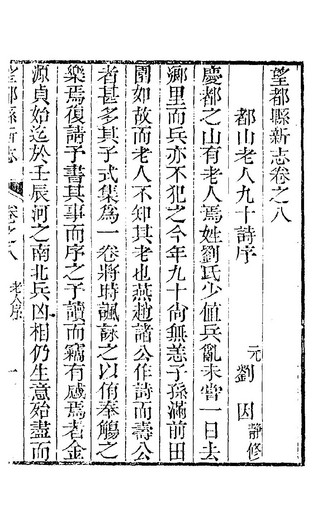 望都縣新志卷之八
都山老人九十詩序
元劉因靜修
慶都之山有老人焉姓劉氏少值兵亂未嘗一日去
鄉里而兵亦不犯之今年九十尚無恙子孫滿前田
園如故而老人不知其老也燕趙諸公作詩而壽公
者甚多其子式集為一卷將時諷詠之以侑奉觴之
樂焉復請予書其事而序之予讀而竊有感焉若金
源貞始迄於壬辰河之南北兵凶相仍生意殆盡而
望都縣新志
卷之八
老人序
一